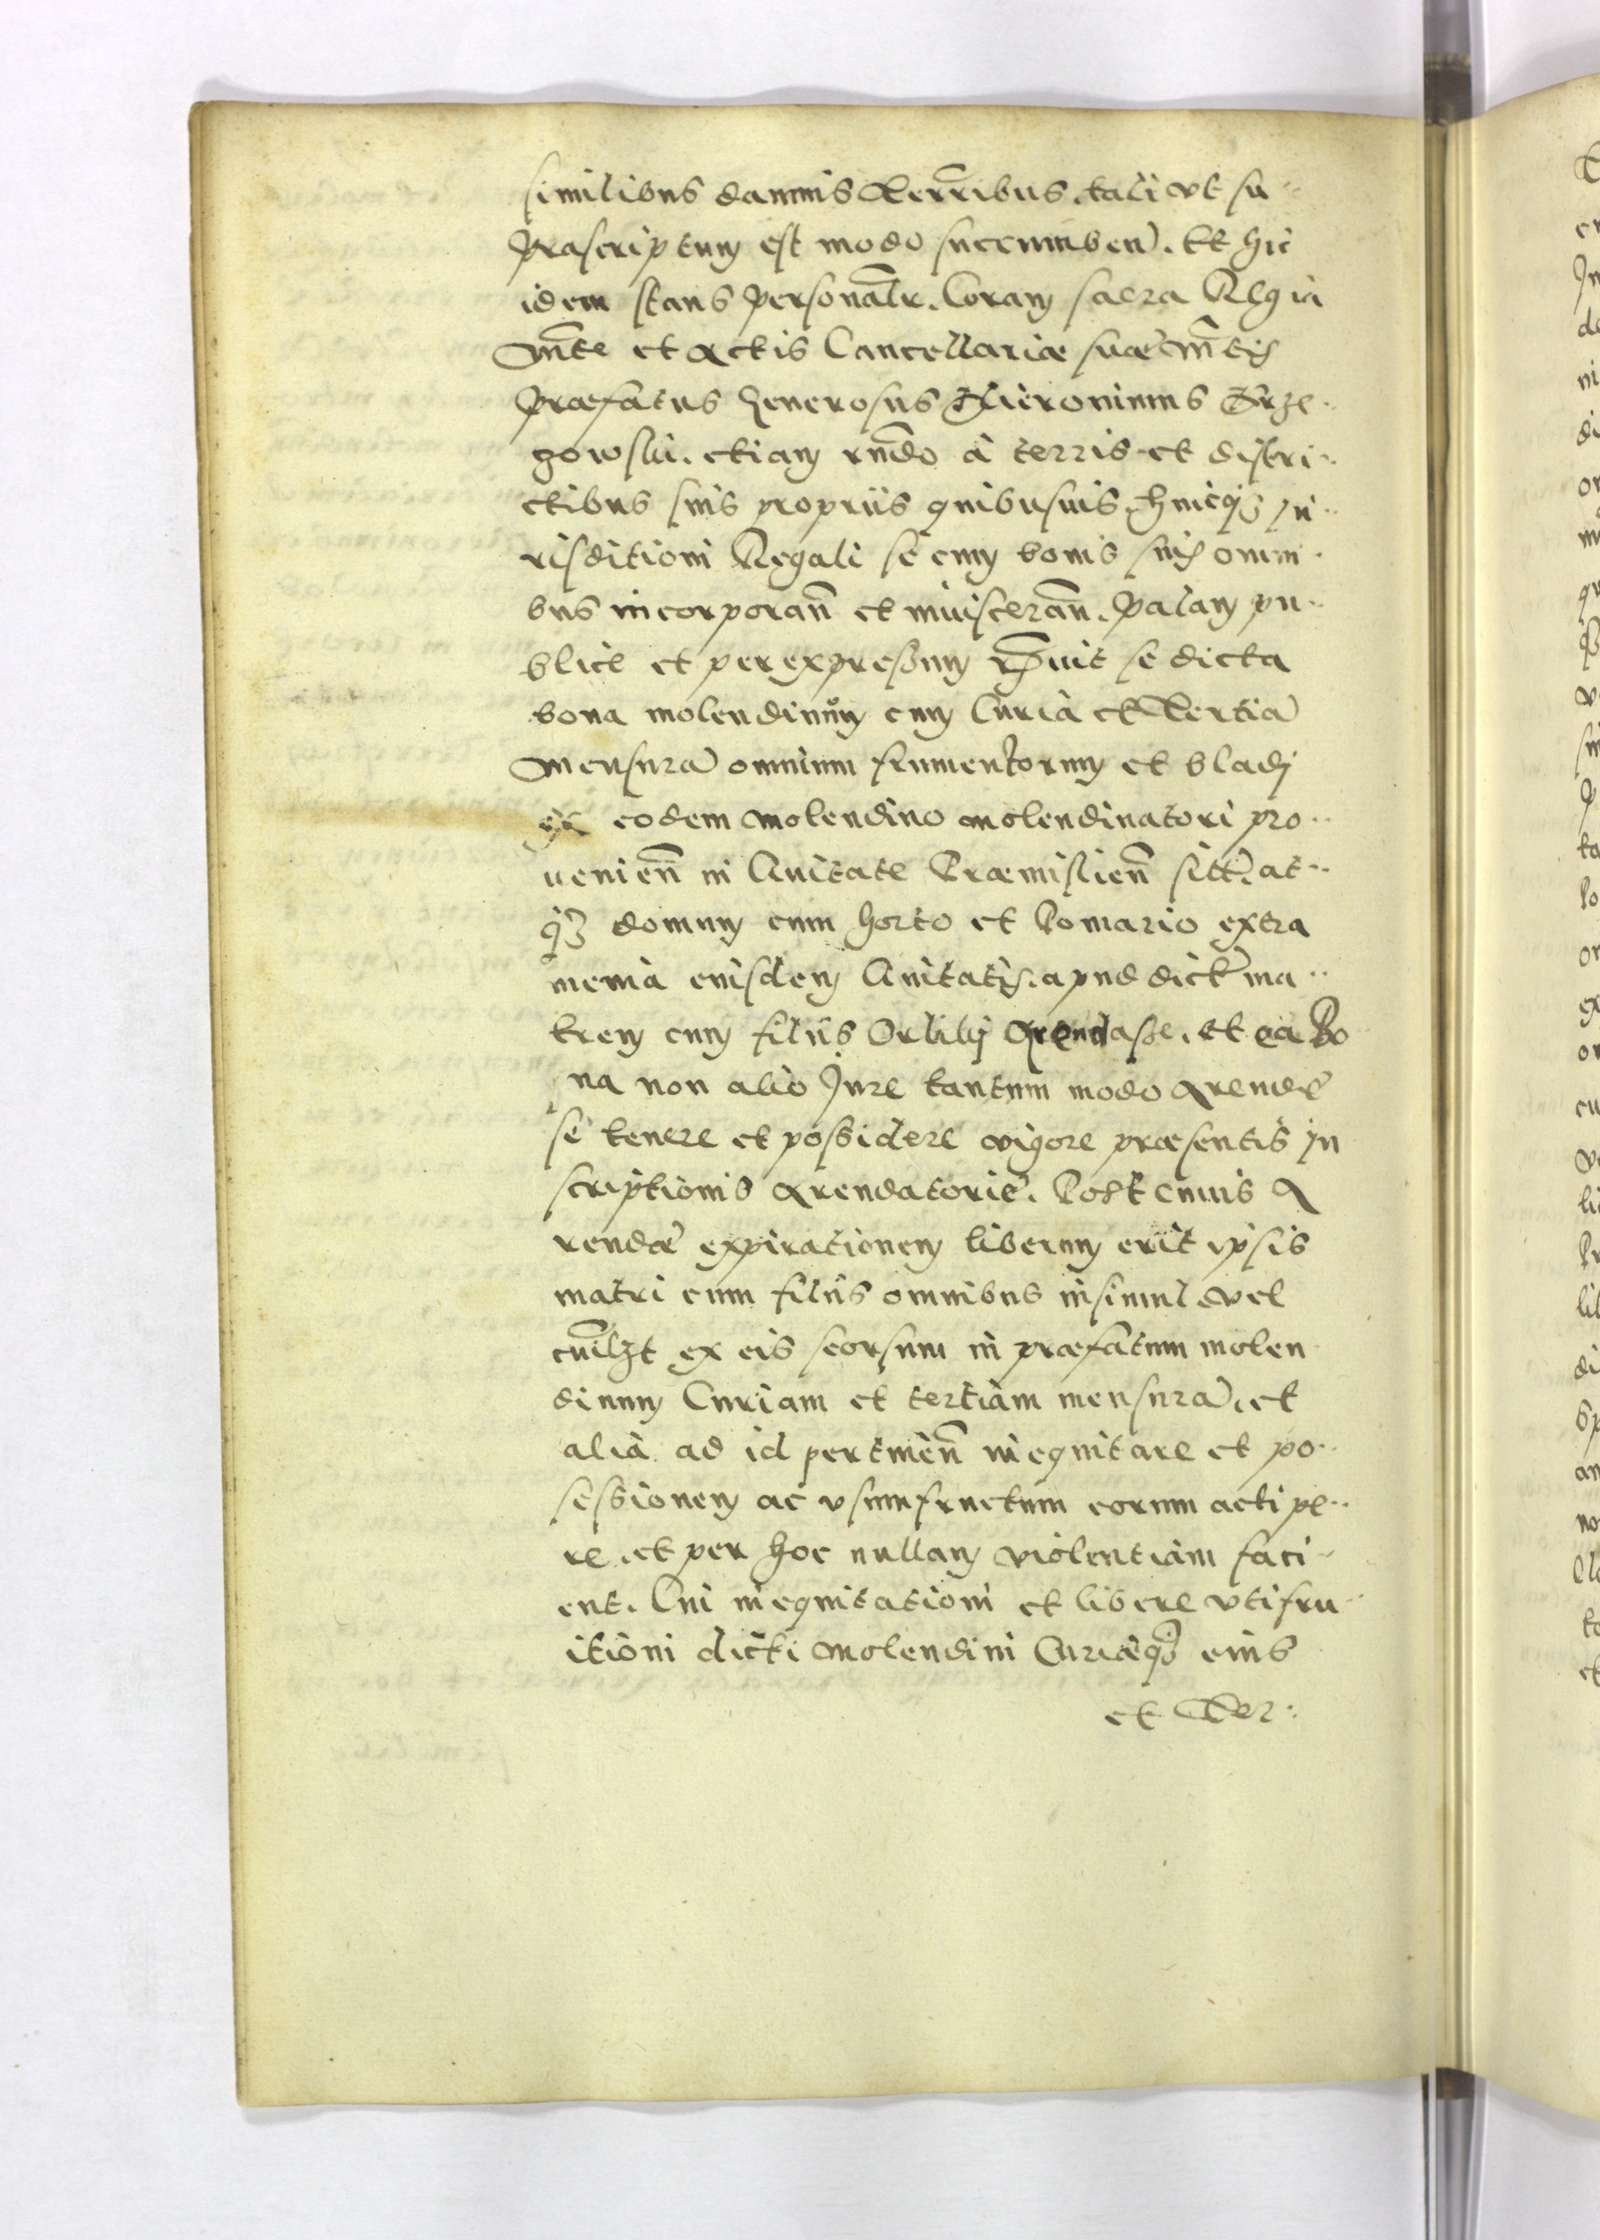 similibus damnis Terrēribus, tali vt su..
prascriptum est modo succumben̄. Et hic
idem stans personālr. Coram sacra Regia
Mtē et Actis Cancellariæ suæ Mtīs
præfatus Generosus Hieronimus Brze..
gowski. etiam rndō à terris et distri..
ctibus suis propriis quibusuis, huicq₃ Ju..
risditioni Regali se cum bonis suis omni..
bus incorporan̄ et inuisceran̄. Palam pu..
blice et per expressum r̄uit se dicta
bona molendinum cum Curia et Tertia
mensura omnium frumentorum et bladj
ex eodem molendino molendinatori pro..
uenien̄ in Ciuitate Præmislien̄ sitt. at..
q₃ domum cum horto et Pomario extra
menia eiusdem Ciuitatis. apud dict. ma..
trem cum filiis Orlikÿ Arendasse. et ea Bo
na non alio Jure tantum modo Arendæ
se tenere et possidere vigore præsentis in
scriptionis Arendatoriæ. Post cuius A
rendæ expirationem liberum erit ipsis
matri cum filiis omnibus insimul vel
cuilzt ex eis seorsum in præfatum molen
dinum Curiam et tertiam mensurā, et
alia ad id pertinen̄ inequitare et po..
sessionem ac vsumfructum eorum accipe..
re. et per hoc nullam violentiam faci..
ent. Cui inequitationi et libere vtifru..
itioni dicti molendini Curiæq₃ eius
et Ter: